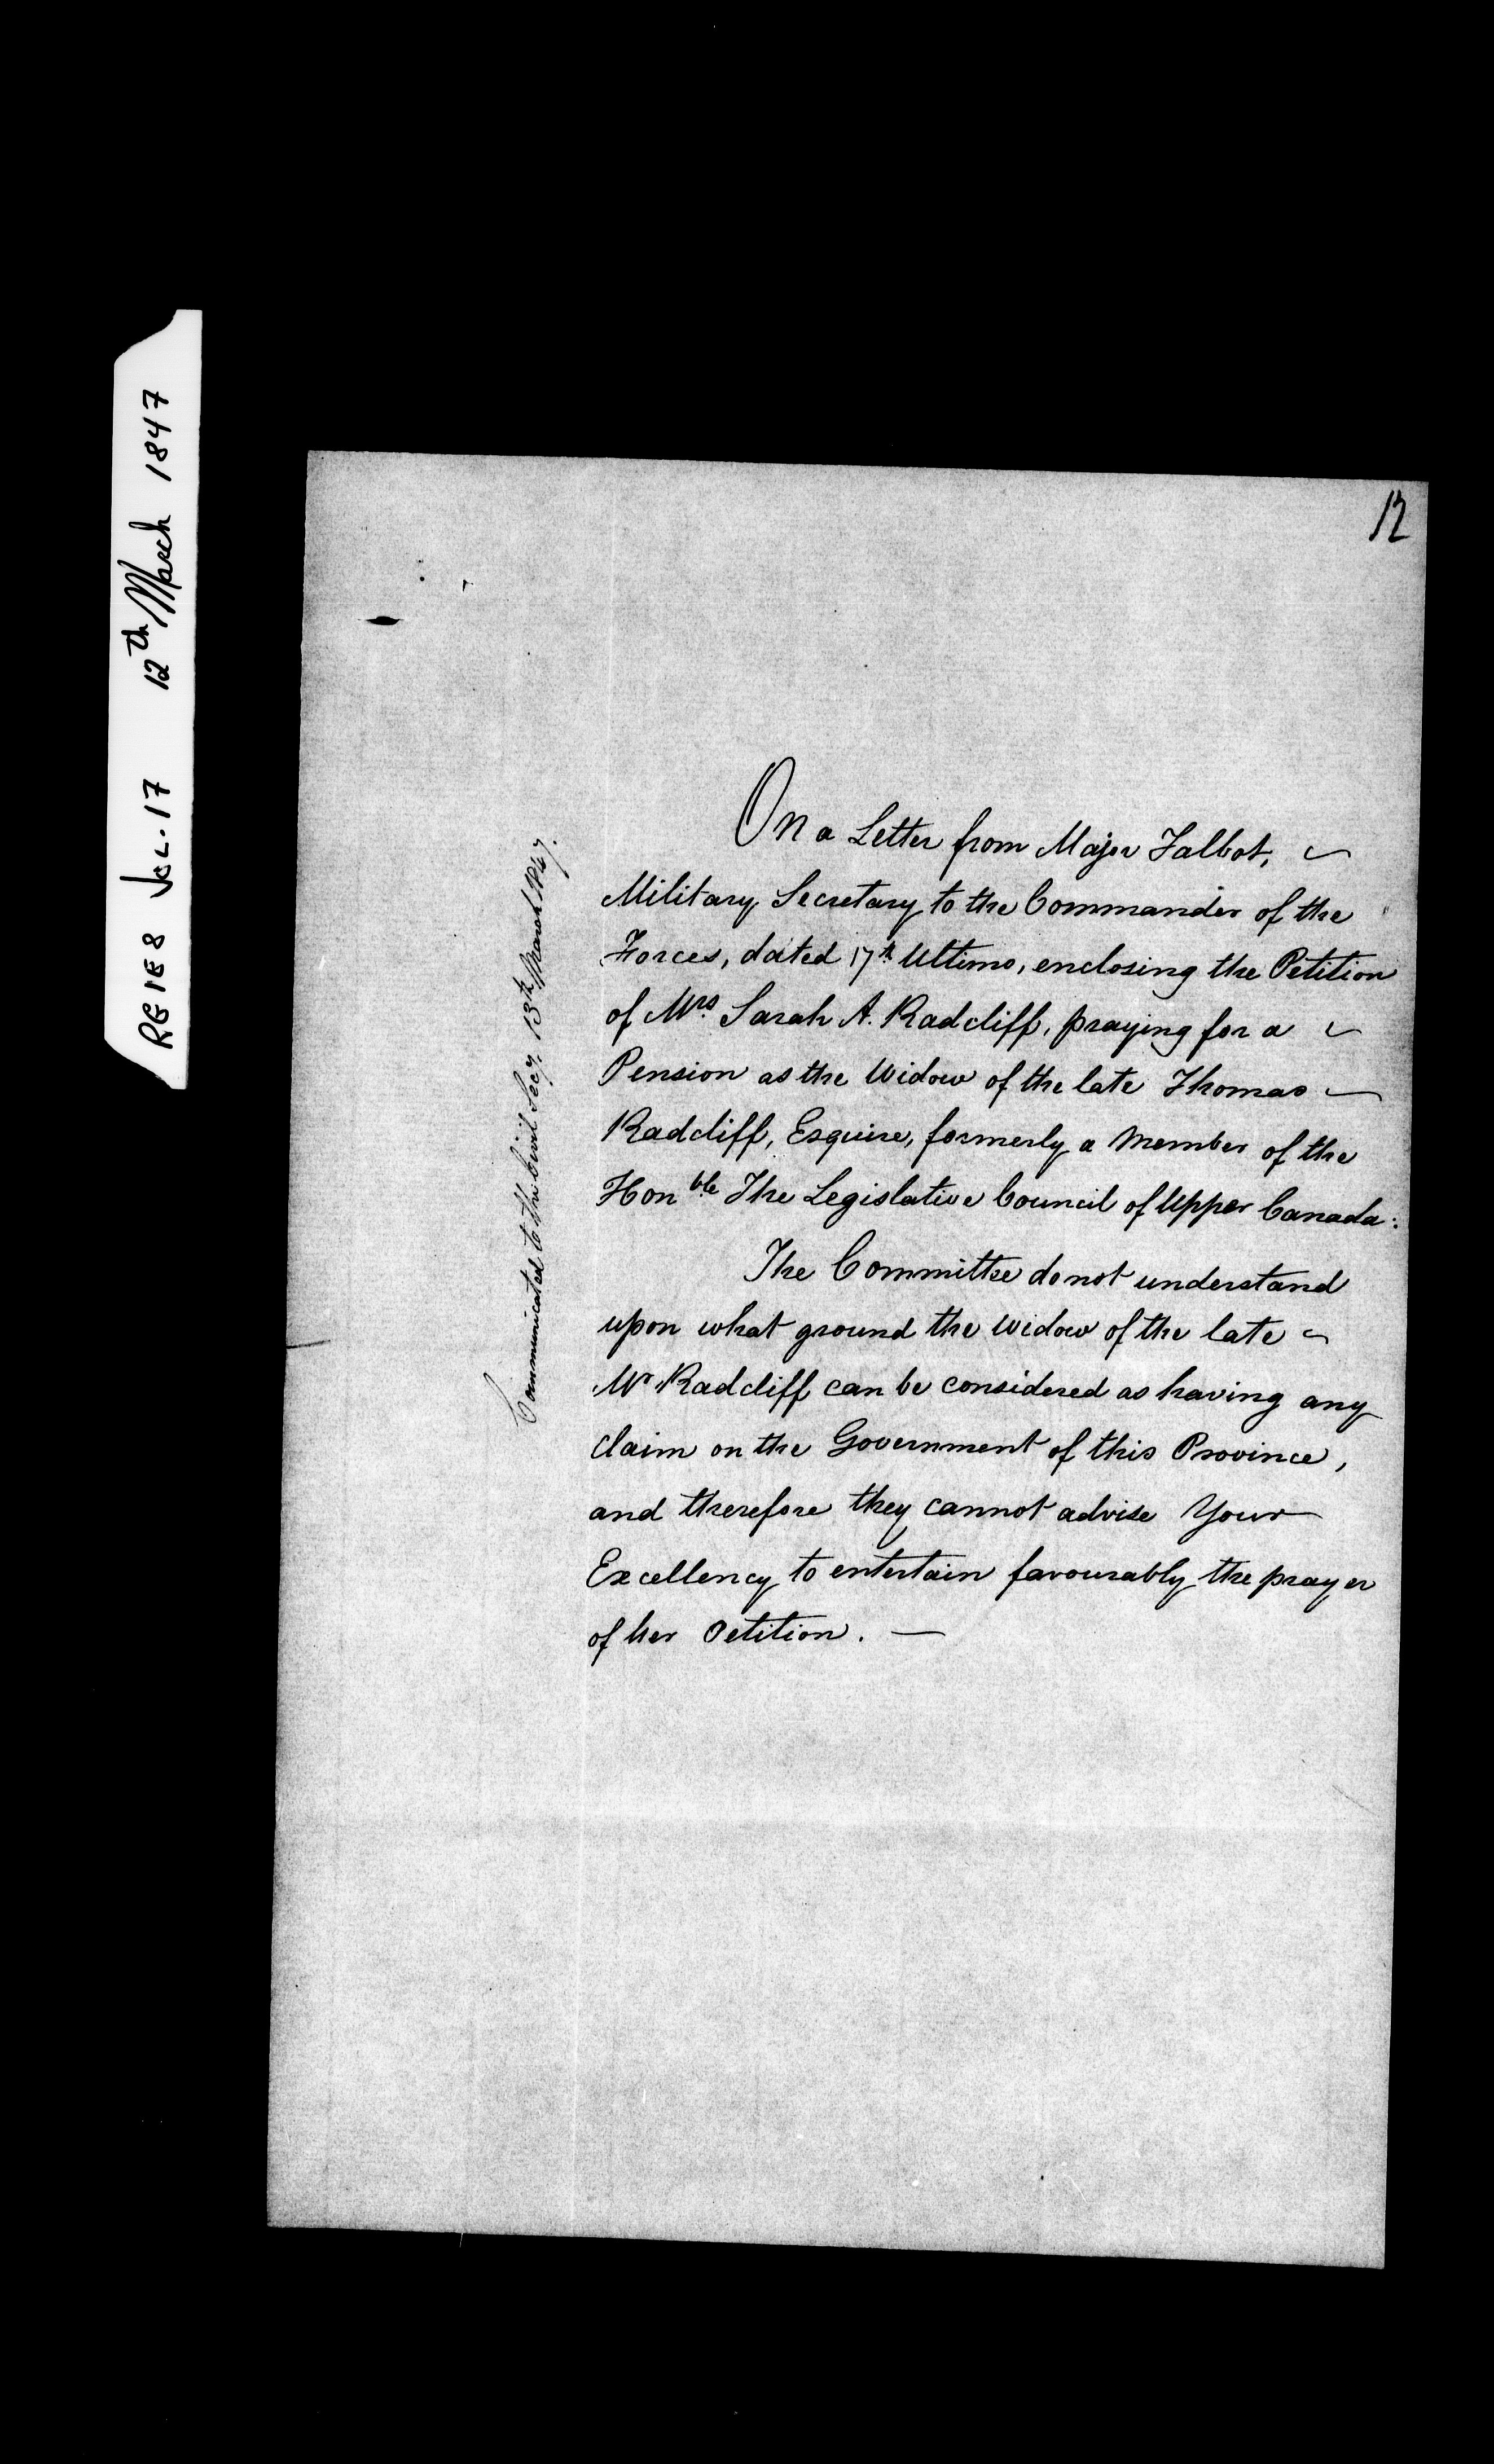 RG1E8 VOL. 17 12th March 1847
12
Communicated to the Civil Secy. 13th March 1847.
On a Letter from Major Talbot,
Military Secretary to the Commander of the
Forces, dated 17th Ultimo, enclosing the Petition
of Mrs. Sarah A. Radcliff, praying for a
Pension as the Widow of the late Thomas —
Radcliff, Esquire, formerly a Member of the
Honble The Legislative Council of Upper Canada:
The Committee do not understand
upon what ground the Widow of the late
Mr Radcliff can be considered as having any
claim on the Government of this Province,
and therefore they cannot advise Your
Excellency to entertain favourably the prayer
of her Petition. —